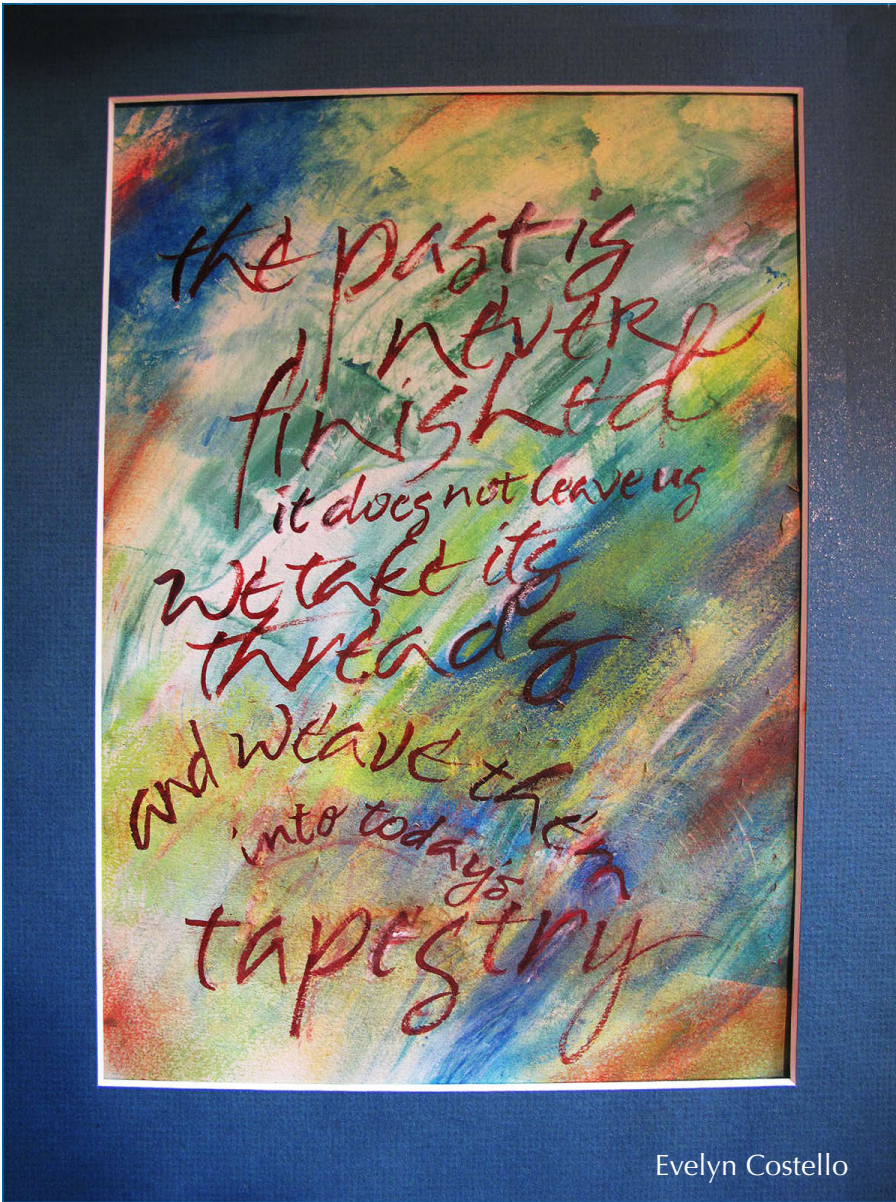 the past is
never
finished
it does not leave us
We take its
threads
and weave them
into today's
tapestry
Evelyn Costello